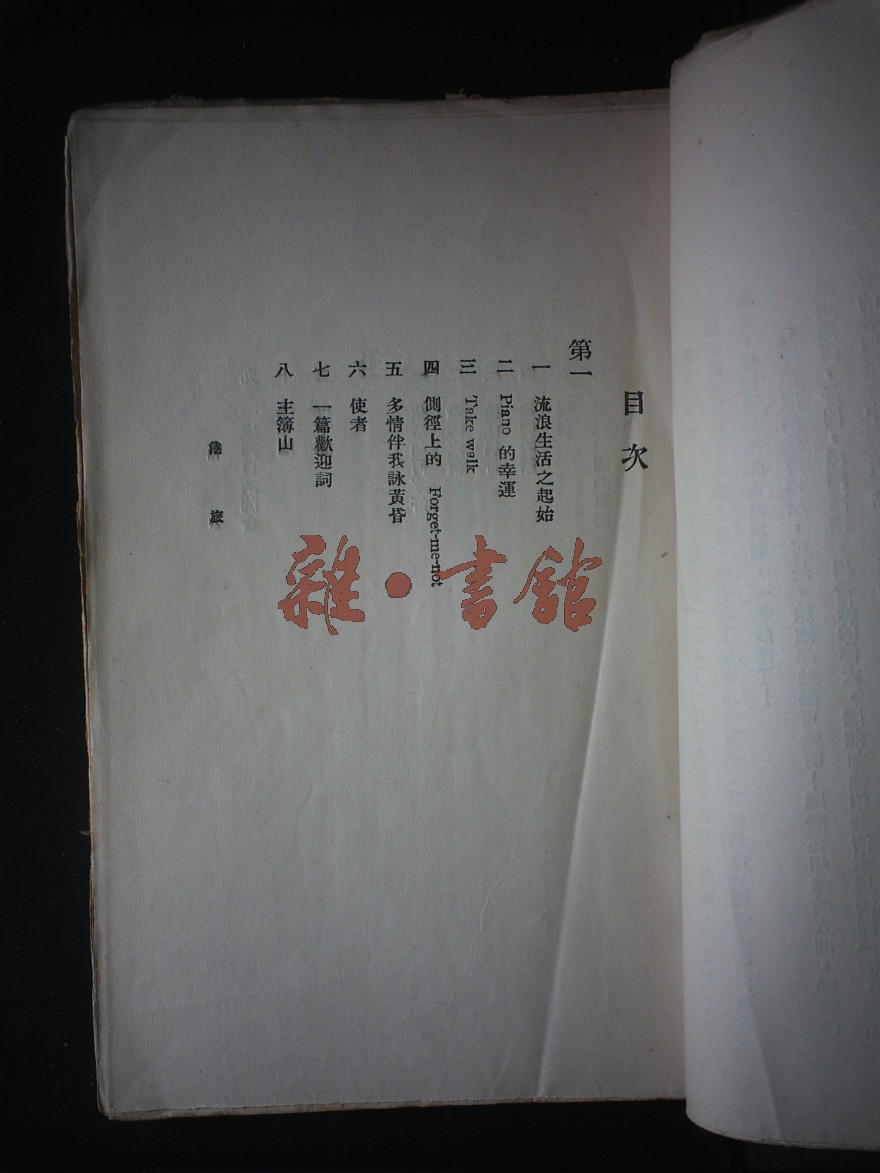 目次
第一
一 流浪生活之起始
二 Piano 的幸運
三 Take walk
四 側徑上的 Forget-me-not
五 多情伴我詠黃昏
六 使者
七 一篇歡迎詞
八 主簿山
旅
雜·書館